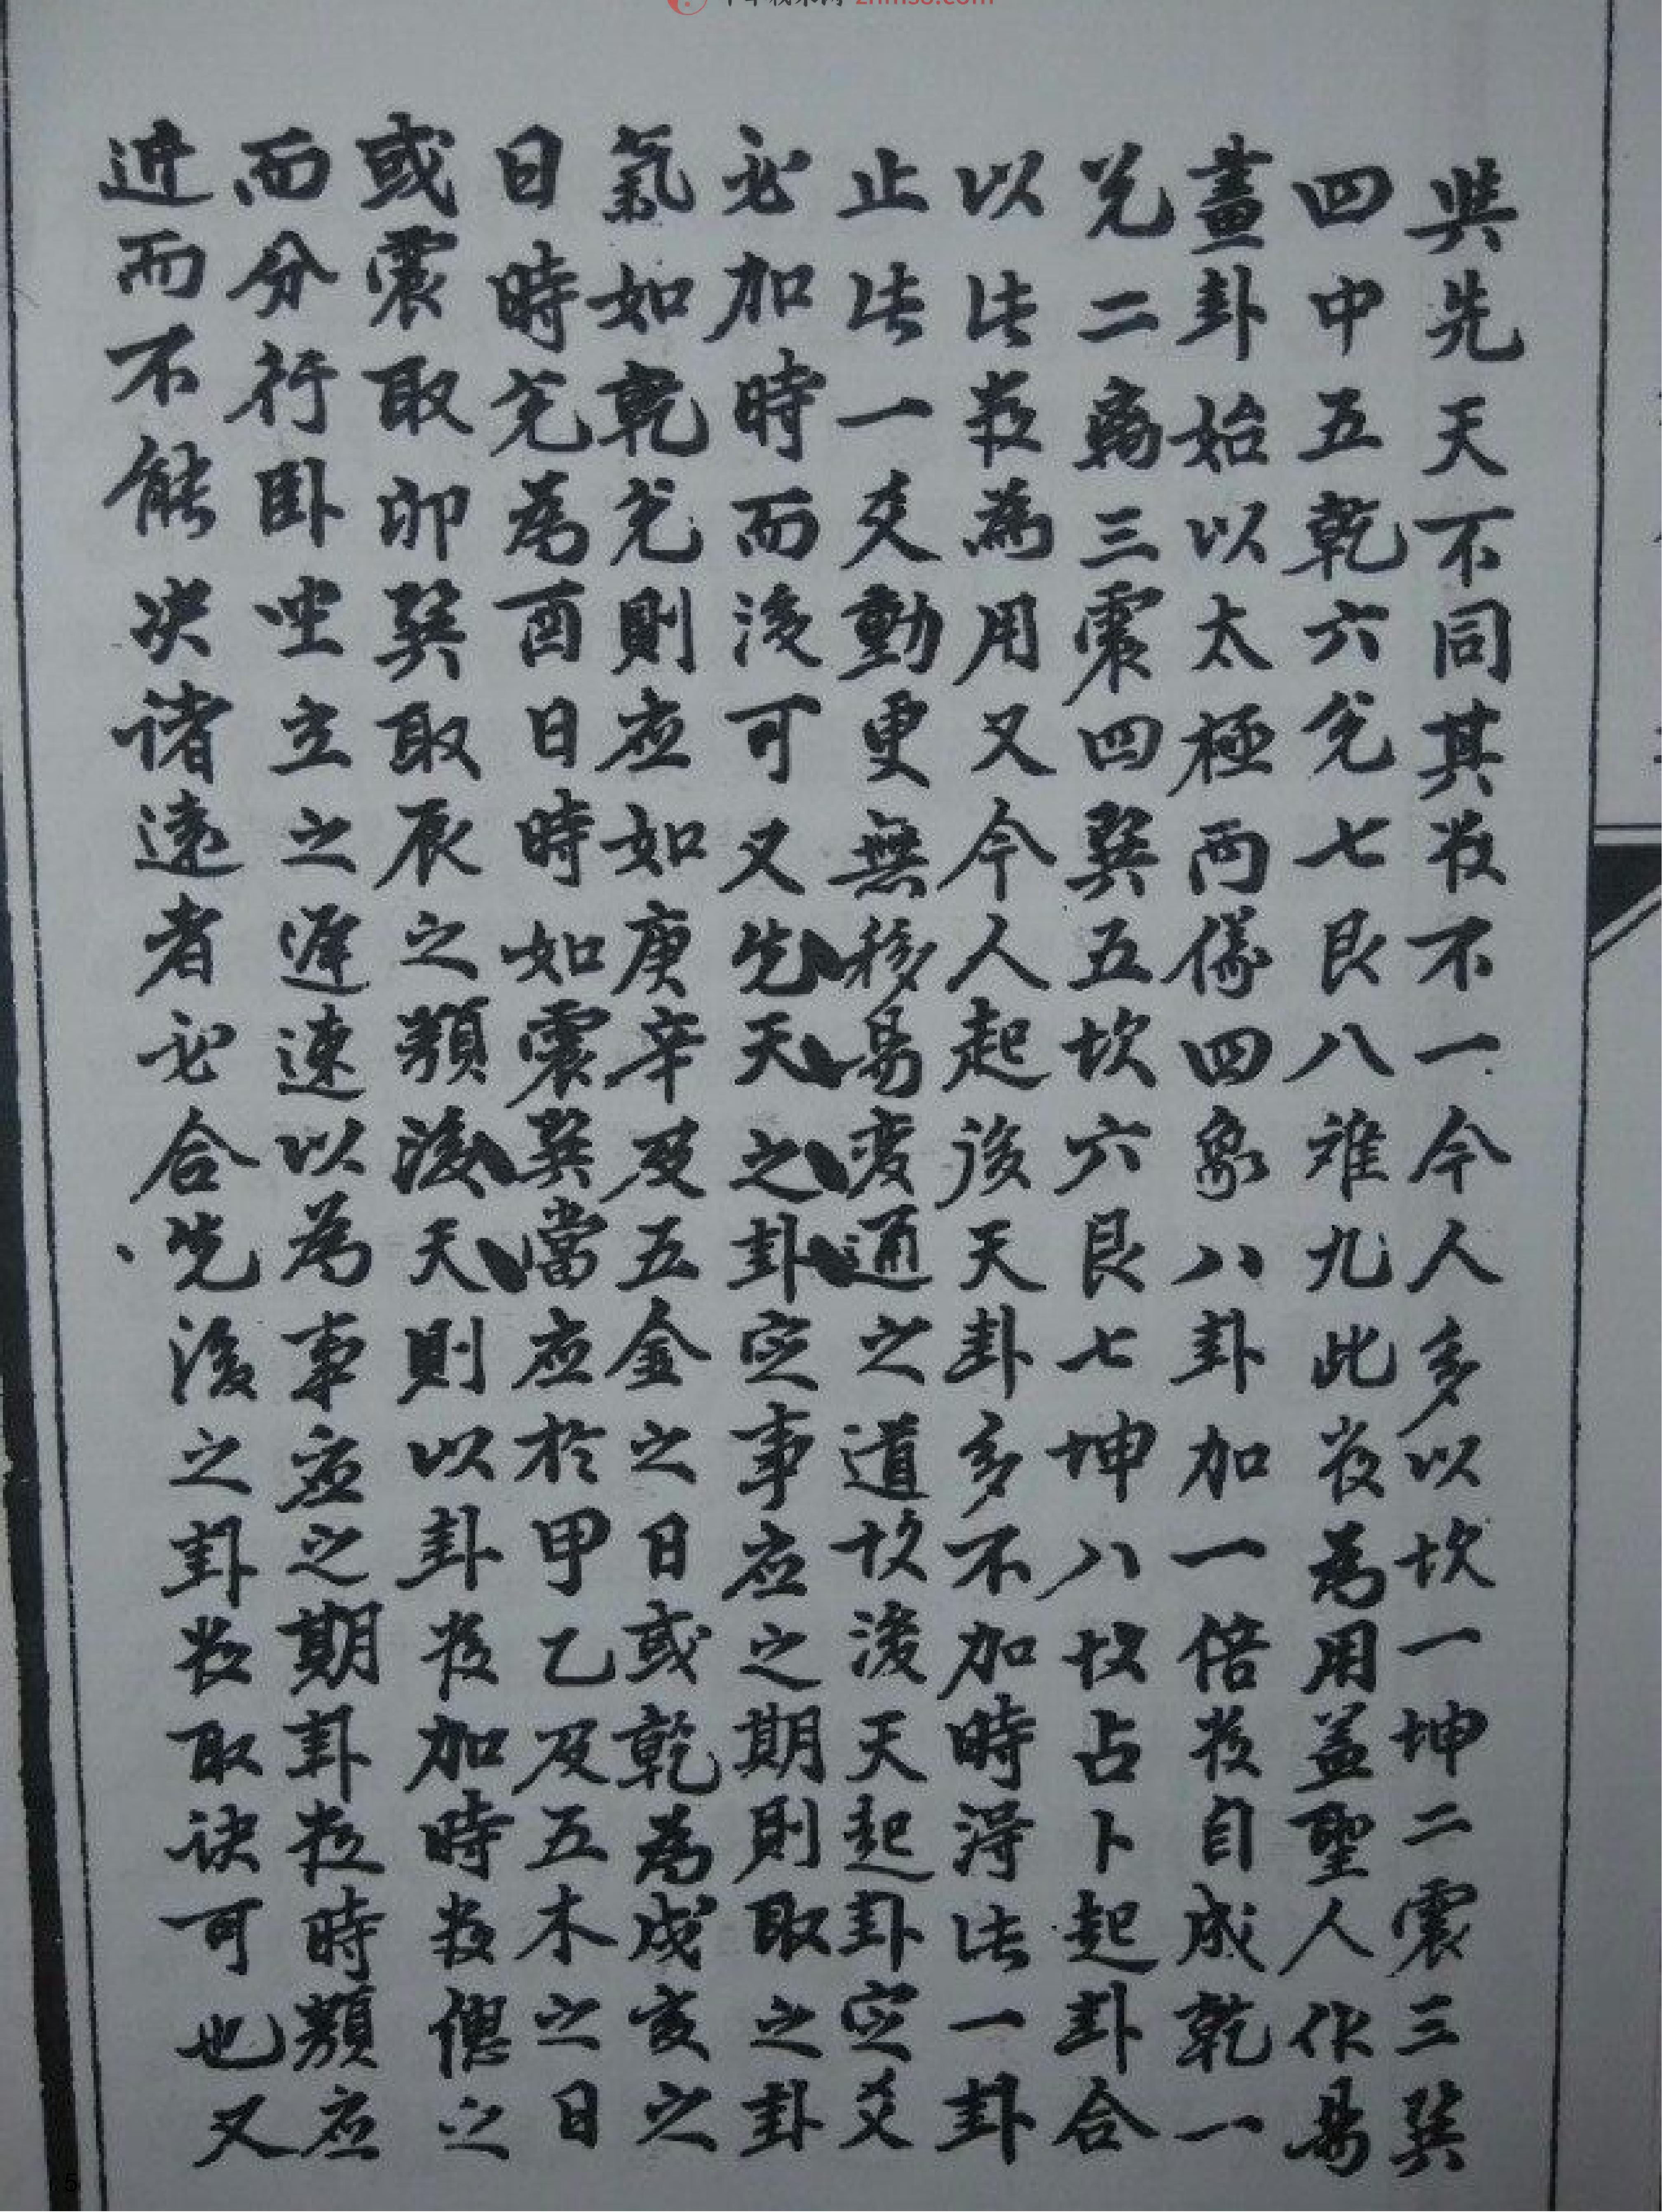 與先天不同其数不一今人多以坎一坤二震三巽
四中五乾六兑七艮八难九此数為用盖聖人作易
畫卦始以太極两儀四象八卦加一倍数自成乾一
兑二离三震四巽五坎六艮七坤八故占卜起卦合
以此数為用又今人起後天卦多不加時淂此一卦
止此一爻動更無移易变通之道故後天起卦定爻
必加時而後可又先天之卦定事应之期則取之卦
氣如乾兑則应如庚辛及五金之日或乾為戌亥之
日時兑為酉日時如震巽當应於甲乙及五木之日
或震取卯巽取辰之類後天則以卦数加時数總之
而分行卧坐立之遲速以為事应之期卦数時類应
近而不能决诸遠者必合先後之卦数取诀可也又
5
zhms8.com